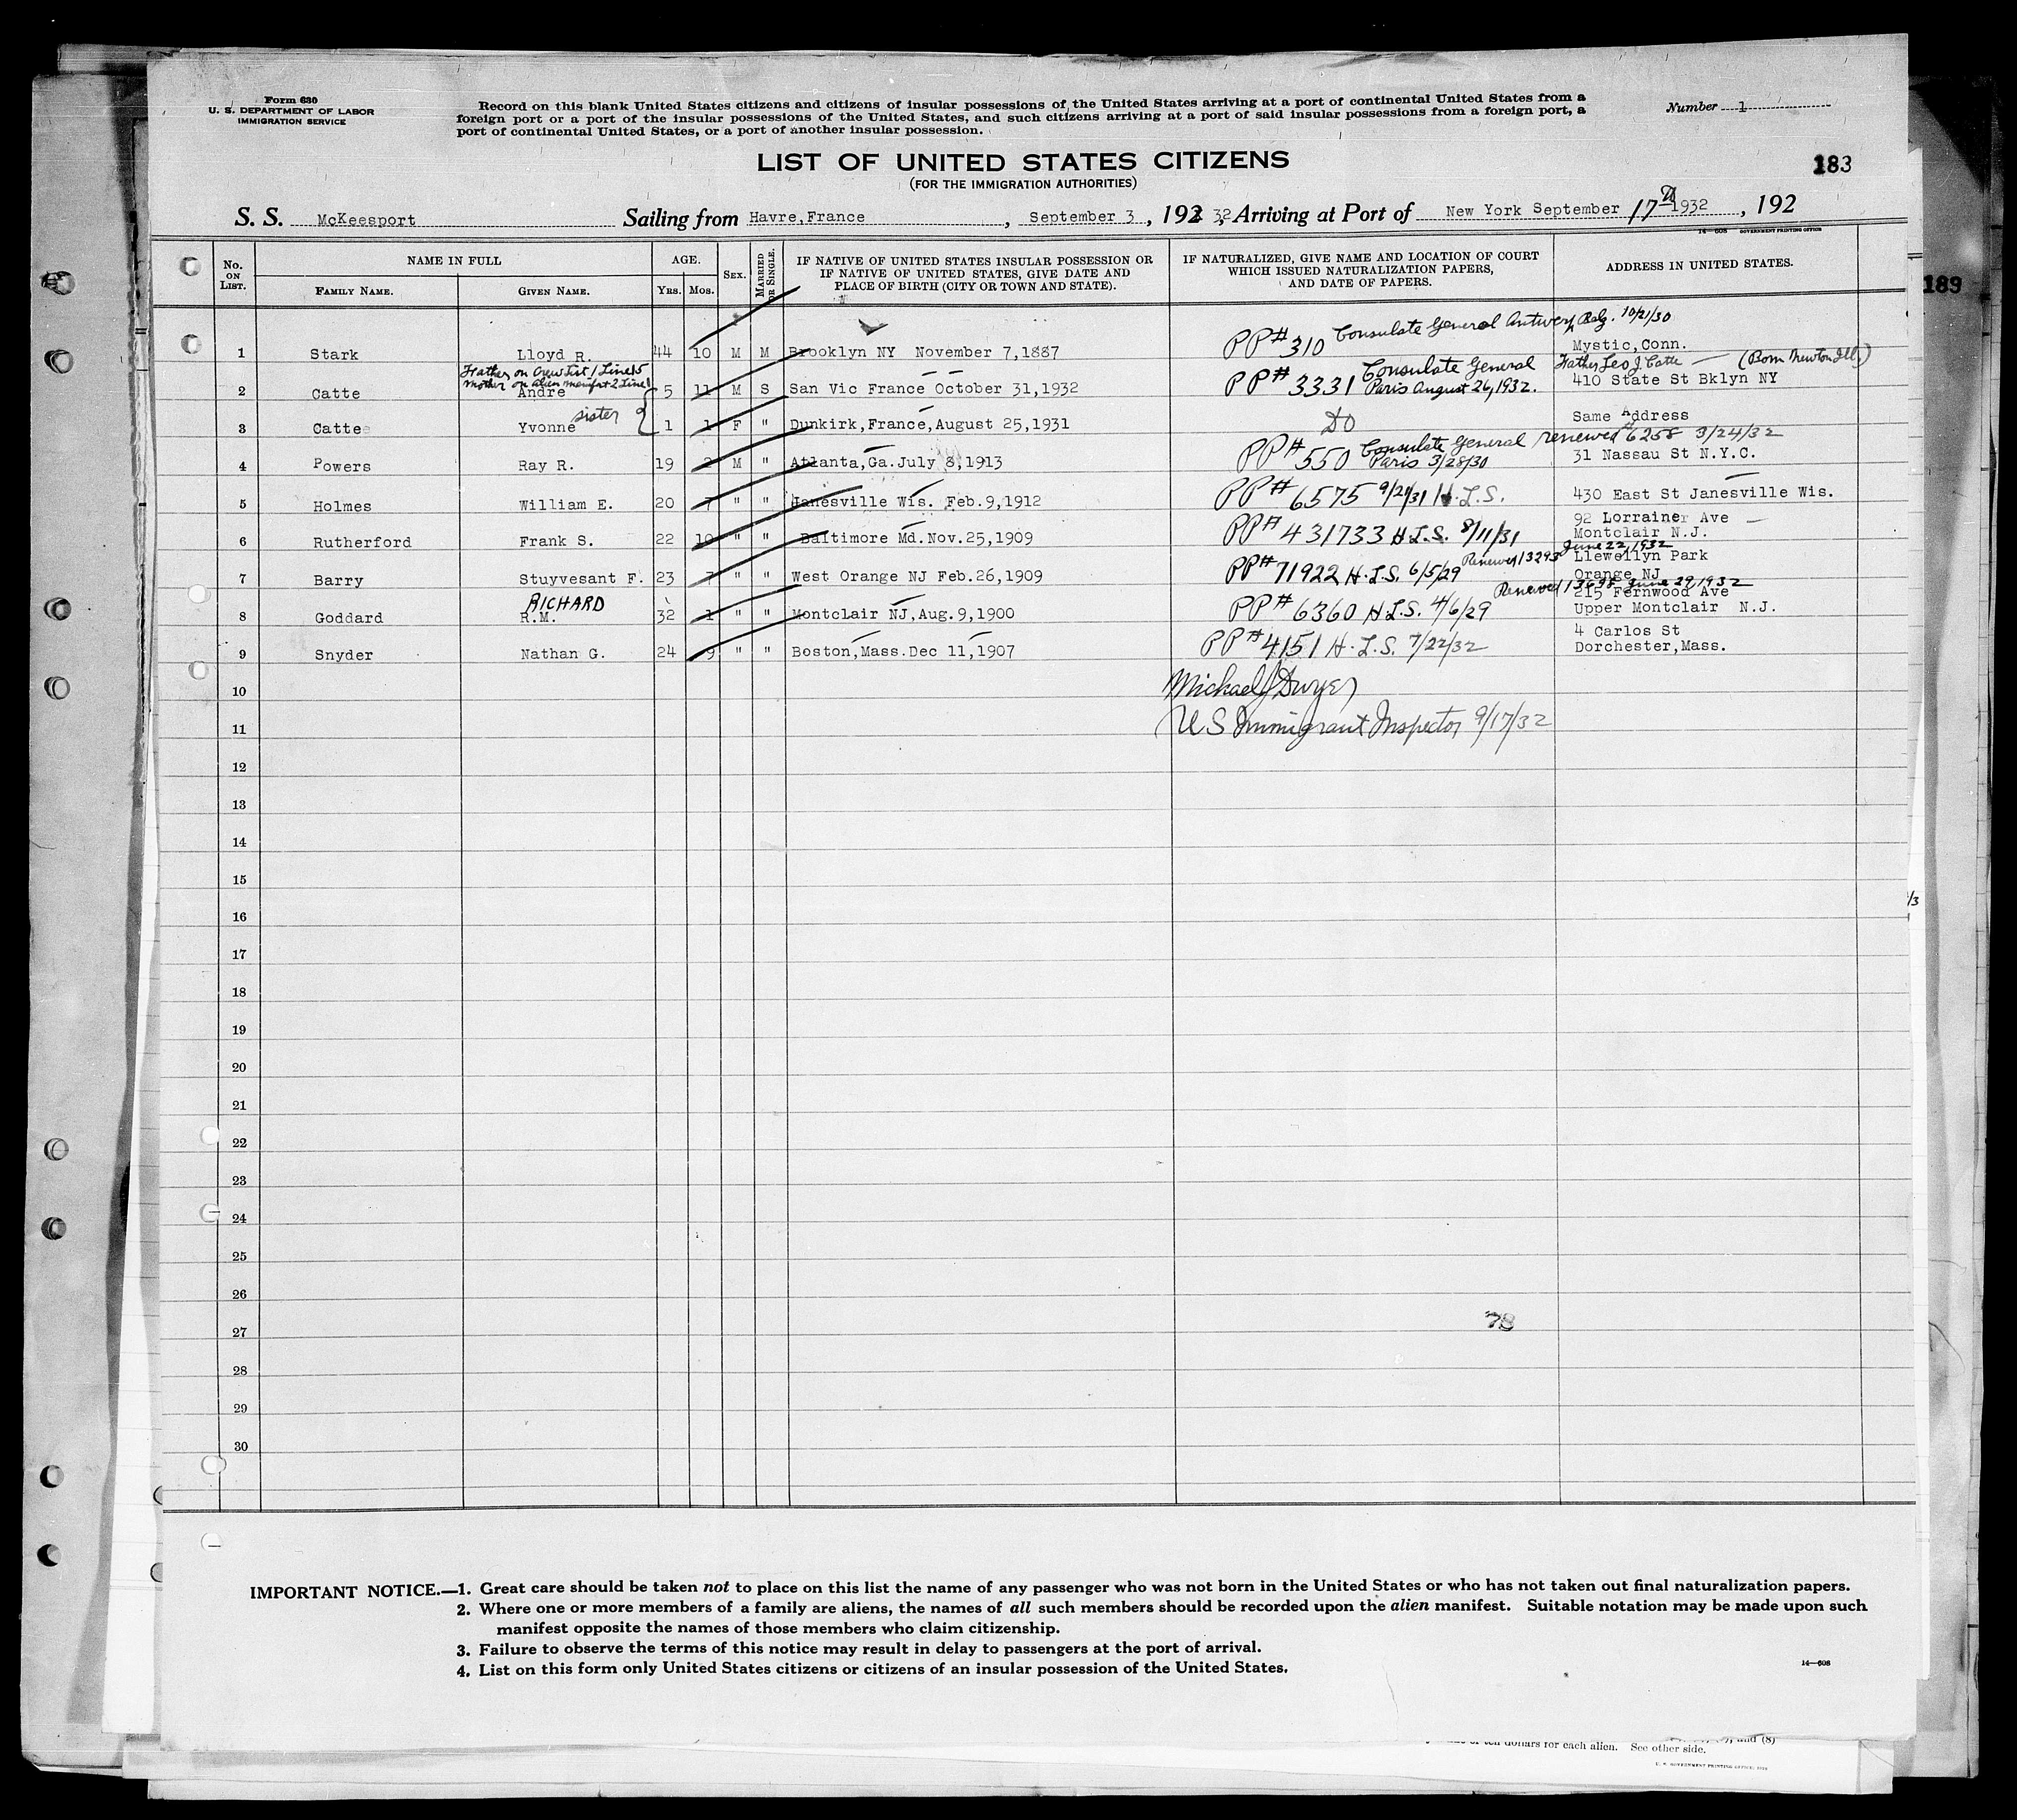 Form 630
U. S. DEPARTMENT OF LABOR
IMMIGRATION SERVICE
Record on this blank United States citizens and citizens of insular possessions of the United States arriving at a port of continental United States from a
foreign port or a port of the insular possessions of the United States, and such citizens arriving at a port of said insular possessions from a foreign port, a
port of continental United States, or a port of another insular possession.
Number 1
LIST OF UNITED STATES CITIZENS
(FOR THE IMMIGRATION AUTHORITIES)
183
S. S. McKeesport Sailing from Havre,France, September 3, 192 32, Arriving at Port of New York September 17th 1932, 192
14—608 GOVERNMENT PRINTING OFFICE
189
No. ON LIST. NAME IN FULL AGE. SEX. MARRIED OR SINGLE. IF NATIVE OF UNITED STATES INSULAR POSSESSION OR IF NATIVE OF UNITED STATES, GIVE DATE AND PLACE OF BIRTH (CITY OR TOWN AND STATE). IF NATURALIZED, GIVE NAME AND LOCATION OF COURT WHICH ISSUED NATURALIZATION PAPERS, AND DATE OF PAPERS. ADDRESS IN UNITED STATES.
FAMILY NAME. GIVEN NAME. YRS. MOS.
1 Stark Lloyd R. 44 10 M M Brooklyn NY November 7,1887 PP# 310 Consulate General Antwerp Belg. 10/21/30 Mystic,Conn.
Father on Crew List 1 Line 15
Mother on alien manifest 2 Line 1
Father Leo J. Catte — (Born Newton Ill.)
2 Catte Andre 5 11 M S San Vic France October 31,1932 PP# 3331 Consulate General Paris August 26, 1932. 410 State St Bklyn NY
3 Catte Yvonne sister 1 1 F " Dunkirk,France,August 25,1931 Do Same Address
4 Powers Ray R. 19 2 M " Atlanta,Ga.July 8,1913 PP# 550 Consulate General Paris 3/28/30 renewed #6258 3/24/32 31 Nassau St N.Y.C.
5 Holmes William E. 20 7 " " Janesville Wis. Feb.9,1912 PP# 6575 9/21/31 H.L.S. 430 East St Janesville Wis.
6 Rutherford Frank S. 22 10 " " Baltimore Md.Nov.25,1909 PP# 431733 H.L.S. 8/11/31 92 Lorrainer Ave
Montclair N.J.
7 Barry Stuyvesant F. 23 7 " " West Orange NJ Feb.26,1909 PP# 71922 H.L.S. 6/5/29 Renewed 13293 June 22, 1932 Llewellyn Park
Orange NJ
8 Goddard RICHARD R.M. 32 1 " " Montclair NJ,Aug.9,1900 PP# 6360 H.L.S. 4/6/29 Renewed 13698 June 29, 1932 215 Fernwood Ave
Upper Montclair N.J.
9 Snyder Nathan G. 24 9 " " Boston,Mass.Dec 11,1907 PP# 4151 H.L.S. 7/22/32 4 Carlos St
Dorchester,Mass.
10 Michael J Dwyer
11 US Immigrant Inspector 9/17/32
12
13
14
15
16
17
18
19
20
21
22
23
24
25
26
27 78
28
29
30
IMPORTANT NOTICE.—1. Great care should be taken not to place on this list the name of any passenger who was not born in the United States or who has not taken out final naturalization papers.
2. Where one or more members of a family are aliens, the names of all such members should be recorded upon the alien manifest. Suitable notation may be made upon such
manifest opposite the names of those members who claim citizenship.
3. Failure to observe the terms of this notice may result in delay to passengers at the port of arrival.
4. List on this form only United States citizens or citizens of an insular possession of the United States.
14—608
of ten dollars for each alien. See other side.